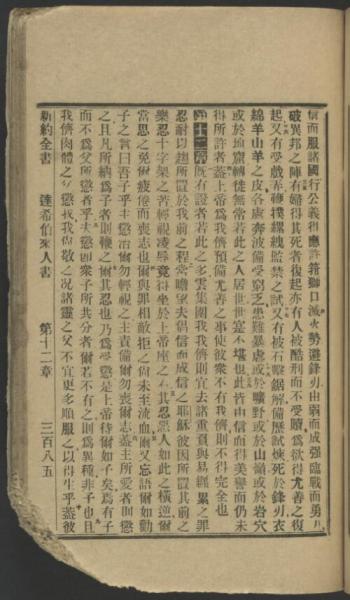 信而服諸國行公義得應許箝獅口滅火勢避鋒刃由弱而成强臨戰而勇
破異邦之陣有婦得其死者復起亦有人被酷刑而不受贖爲欲得尤善之復
起又有受戲弄鞭撲縲絏監禁之試又有被石擊鋸解備歷試煉死於鋒刃衣
綿羊山羊之皮各處奔波備受窮乏患難暴虐或於曠野或於山嶺或於岩穴
或於地窟轉徙無常若此之人居世世寔不堪也此皆由信而得美譽而仍未
得所許者蓋上帝爲我儕預備尤善之事使彼衆不有我儕則不得完全也
第十二章 旣有證者若此之多雲集圍我我儕則宜去諸重負與易纏累之罪
忍耐以趨所置於我前之程當瞻望夫倡信而成信之耶穌彼因所置其前之
樂忍十字架之苦輕視凌辱竟得坐於上帝座之右其忍惡人如此之橫逆爾
當思之免爾疲倦而喪志也爾與罪相敵拒之尙未至流血爾又忘語爾如勸
子之言曰吾子乎主懲治爾勿輕視之主責備爾勿喪爾志蓋主所愛者則懲
之且凡所納爲子者則鞭之爾其忍也乃爲受懲是上帝待爾如子矣焉有子
而不爲父所懲者乎夫懲卽衆子所共分者爾若不有之則爲異種非子也且
我儕肉體之父懲我我尙敬之况諸靈之父不宜更多順服之以得生乎蓋彼
新約全書 達希伯來人書 第十二章 三百八五